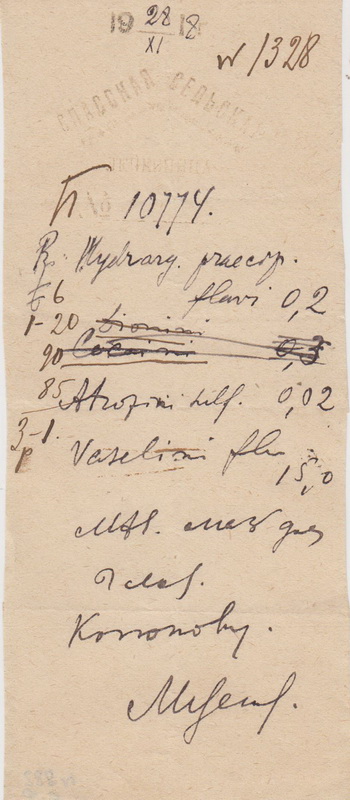 19 28/XI 18
№ 1328
СПАССКАЯ СЕЛЬСКАЯ
ЛЕЧЕБНИЦА
№ 10774.
Rp. Hydrarg. praecip.
6 flavi 0,2
1-20 Dionini
90 Cocaini 0,3
85 Atropini sulf. 0,02
3-1. Vaselini flav
р 15,0
MfD. мазь для
глаз.